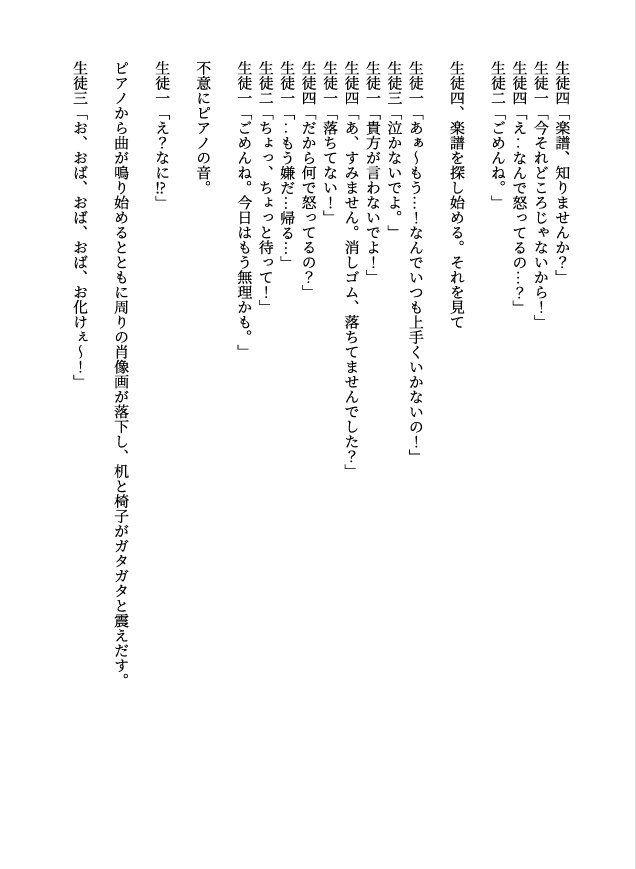 生徒四「楽譜、知りませんか？」
生徒一「今それどころじゃないから！」
生徒四「え‥なんで怒ってるの…？」
生徒二「ごめんね。」
生徒四、楽譜を探し始める。それを見て
生徒一「あぁ〜もう…！なんでいつも上手くいかないの！」
生徒三「泣かないでよ。」
生徒一「貴方が言わないでよ！」
生徒四「あ、すみません。消しゴム、落ちてませんでした？」
生徒一「落ちてない！」
生徒四「だから何で怒ってるの？」
生徒一「‥もう嫌だ…帰る…」
生徒二「ちょっ、ちょっと待って！」
生徒一「ごめんね。今日はもう無理かも。」
不意にピアノの音。
生徒一「え？なに⁉」
ピアノから曲が鳴り始めるとともに周りの肖像画が落下し、机と椅子がガタガタと震えだす。
生徒三「お、おば、おば、おば、お化けぇ〜！」